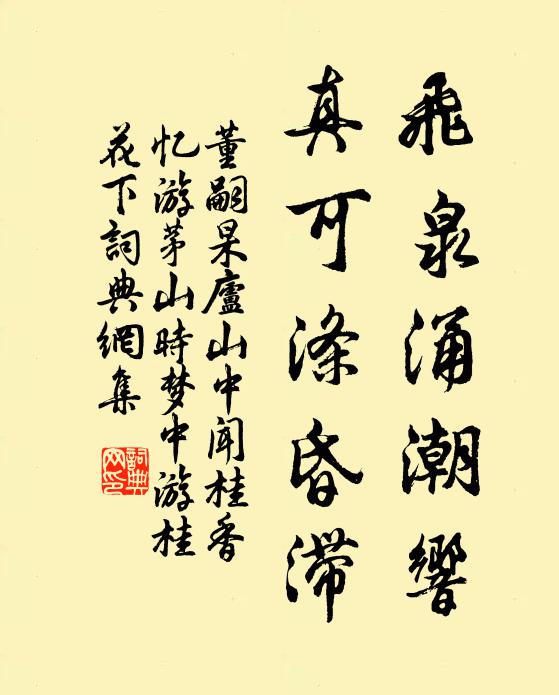 飛泉涌潮響
真可涤昏滞
董嗣杲廬山中闻桂香
忆游茅山時梦中游桂
花下詞典網集
詞典网印